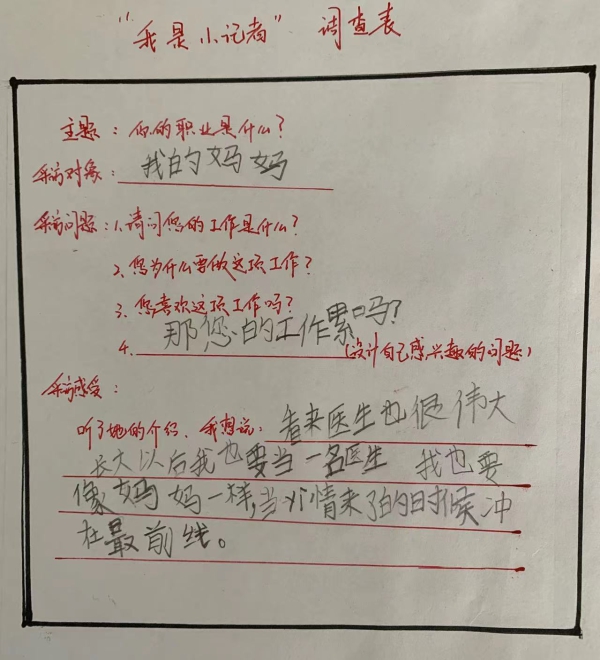 “我是小记者” 调查表
主题：你的职业是什么？
采访对象：我的妈妈
采访问题：1.请问您的工作是什么？
2.您为什么要做这项工作？
3.您喜欢这项工作吗？
4.那您的工作累吗？(设计自己感兴趣的问题)
采访感受：
听了她的介绍，我想说：看来医生也很伟大
长大以后我也要当一名医生 我也要
像妈妈一样,当 情来了的时候冲
在最前线。